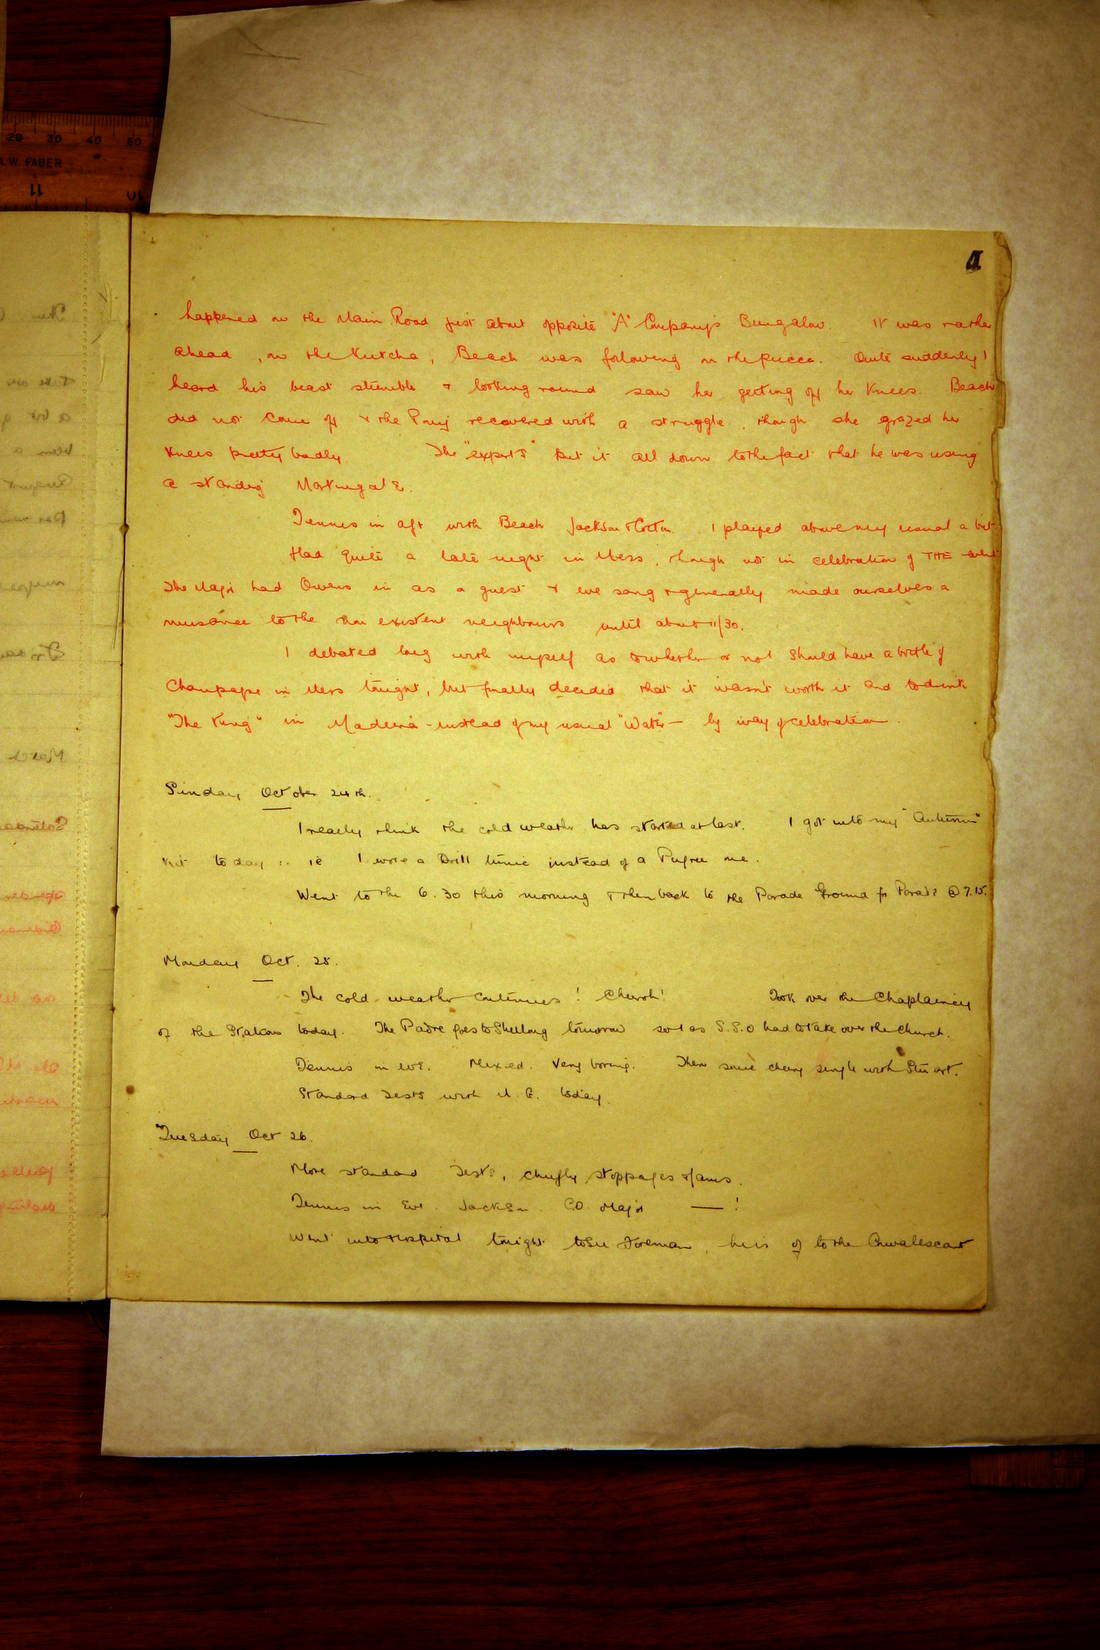 4
happened on the Main Road just about opposite "A" Company's Bungalow. It was rather
ahead, on the Kutcha, Beach was following on the pucca. Quite suddenly I
heard his beast stumble & looking round saw her getting off her Knees. Beach
did not come off & the Pony recovered with a struggle, though she grazed her
Knees pretty badly The "experts" Put it all down to the fact that he was using
a standing Martingale.
Tennis in aft with Beach Jackson & I played above my usual a bit
Had quite a late night in Mess, though not in celebration of THE event
The Major had Owens in as a guest & we sang & generally made ourselves a
nuisance to the non existent neighbours until about 11/30.
I debated long with myself as to whether or not should have a bottle of
Champagne in Mess tonight, but finally decided that it wasn't worth it and to drink
"The King" in Madeira - instead of my usual "Water" - by way of celebration.
Sunday October 24th.
I really think the cold weather has started at last. I got into my "Autumn"
Kit today :. ie I wore a Drill tunic instead of a one.
Went to the 6.30 this morning & then back to the Parade Ground for Parade @ 7.15.
Monday Oct. 25.
The cold weather continues! Church! Took over the Chaplaincy
of the Station today. The Padre goes to Shillong tomorrow so I as S.S.O had to take over the Church.
Tennis in eve. Mixed. Very boring. Then some single with Stuart.
Standard Tests with M.G. today.
Tuesday Oct 26.
More standard Tests, chiefly stoppages
Tennis in Eve. Jackson CO. Major — !
Went into Hospital tonight to see Foreman, he is off to the Convalescent